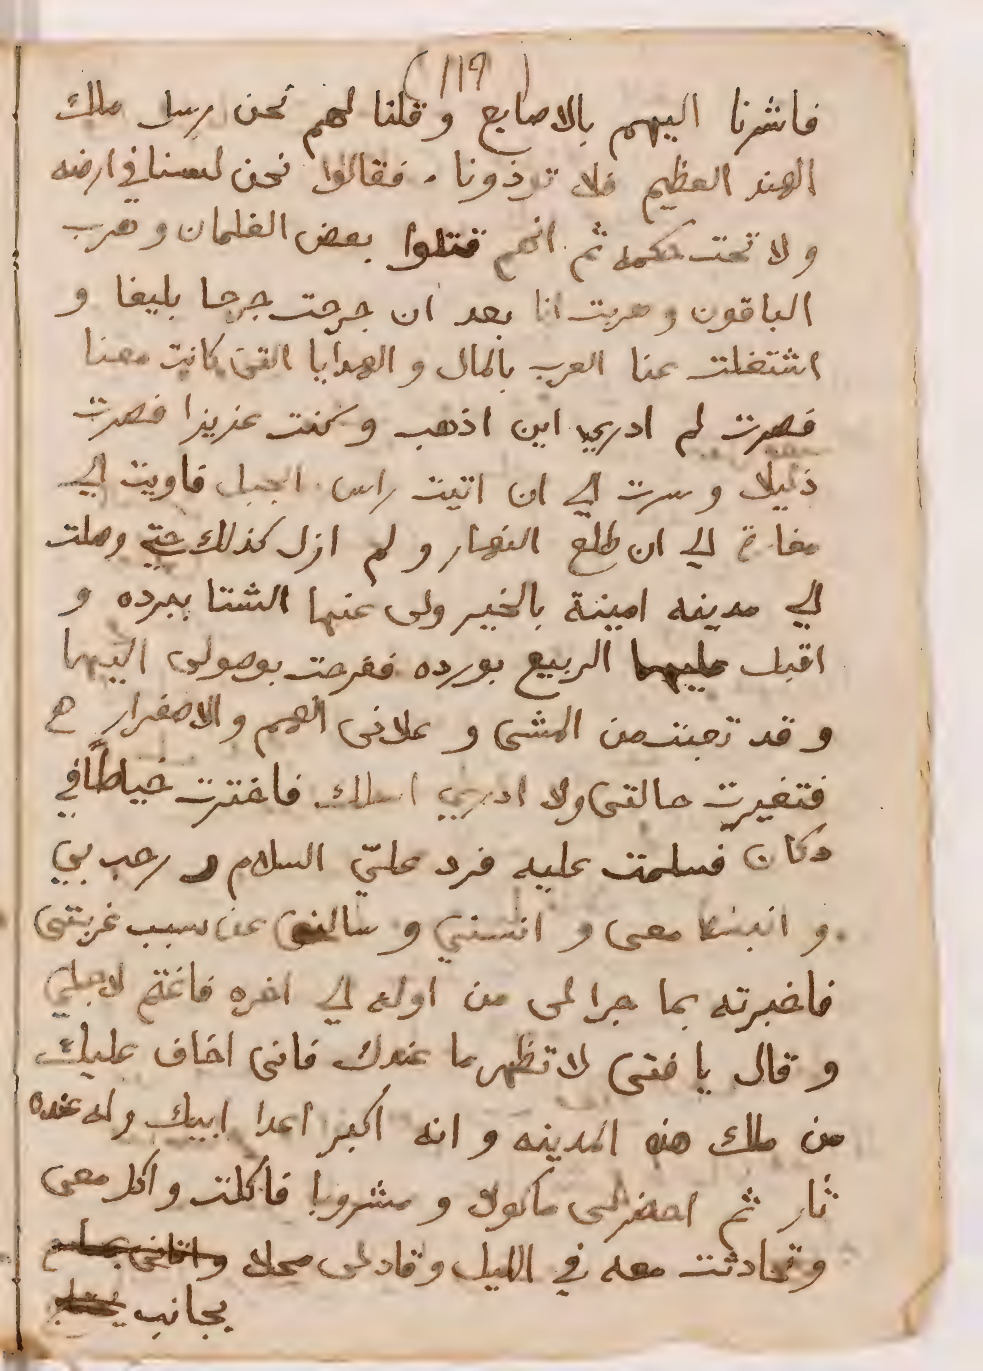 (١١٩)
فاشرنا اليهم بالاصابع وقلنا لهم نحن رسل ملك
الهند العظيم فلا توذونا . فقالوا نحن لسنا في ارضه
ولا تحت حكمه ثم انهم قتلوا بعض الغلمان وهرب
الباقون وهربت انا بعد ان جرحت جرحا بليغا و
اشتغلت عنا العرب بالمال والهدايا التى كانت معنا
فصرت لم ادري اين اذهب وكنت عزيزا فصرت
ذليلا وسرت الي ان اتيت راس الجبل فاويت الي
مغارة الي ان طلع النهار ولم ازل كذلك حتي وصلت
الي مدينه امينة بالخير ولى عنها الشتا ببرده و
اقبل عليها الربيع بورده ففرحت بوصولى اليها
وقد تعبت من المشى وعلانى الهم والاصفرار
فتغيرت حالتى ولا ادري اسلك فاخترت خياطاً في
دكان فسلمت عليه فرد عليّ السلام ورحب بي
وانبسط معى وانسني وسالنى عن سبب غربتى
فاخبرته بما جرا لى من اوله الي اخره فاغتم لاجلي
وقال يا فتى لا تظهر ما عندك فانى اخاف عليك
من ملك هذه المدينه وانه اكبر اعدا ابيك وله عنده
ثار ثم احضر لى ماكولا ومشروبا فاكلت واكل معى
وتحادثت معه في الليل وقاد لى محلا واتانى
بجانب